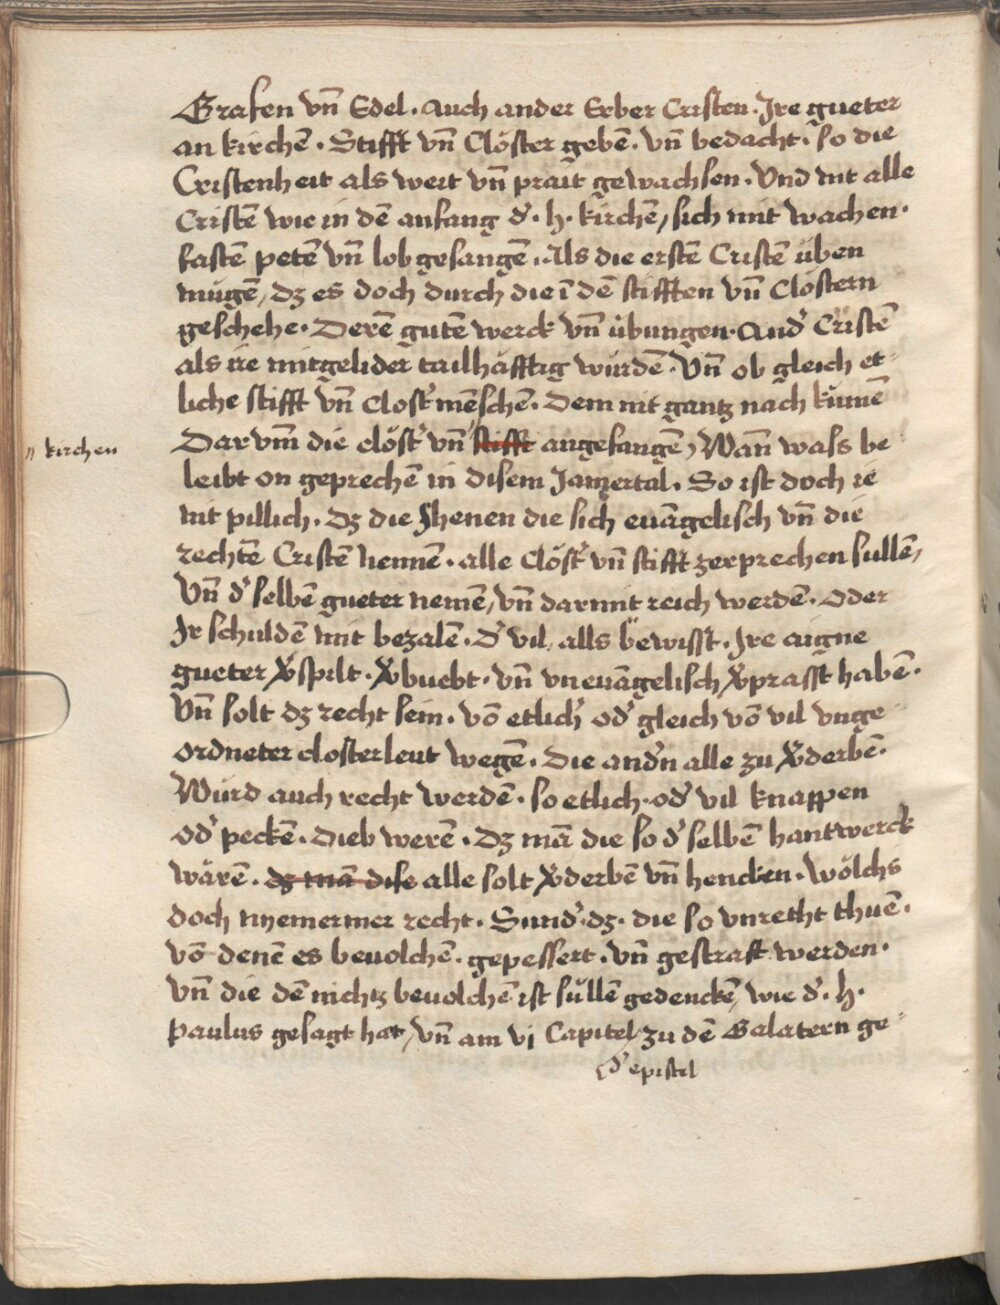 Grafen vn̄ Edel. Auch ander Erber Cristen. Jre gueter
an kirchē. Stifft vn̄ Clöster gebē. vn̄ bedacht. so die
Cristenheit als weit vn̄ prait gewachsen. Vnd nit alle
Cristē wie in dē anfang d'. h. kirchē, sich mit wachen.
fastē petē vn̄ lobgesangē. Als die erstē Cristē üben
mügē, dz es doch durch die ī dē stifften vn̄ Clöstern
geschehe. Derē gutē werck vn̄ übungen. And' Cristē
als ire mitgelider tailhäfftig würdē. Vn̄ ob gleich et-
liche stifft vn̄ Clost' mēschē. Dem nit gantz nach kūmē
" kirchen
Darvm̄ die clöst' vn̄ stifft angefangē, Wan̄ wass be
leibt on geprechē in disem Jamertal. So ist doch ie
nit pillich. Dz die Jhenen die sich euāgelisch vn̄ die
rechtē Cristē nennē. alle Clöst' vn̄ stifft zerprechen sullē,
Vn̄ d' selbē gueter nemē, vn̄ darmit reich werdē. Oder
Jr schuldē mit bezalē. D' vil, alls bewisst. Jre aigne
gueter v'spilt. v'buebt. vn̄ vneuāgelisch v'prasst habē.
Vn̄ solt dz recht sein. vō etlich' od' gleich vō vil vnge
ordneter closterleut wegē. Die and'n alle zu v'derbē.
Würd auch recht werdē. so etlich. od' vil knappen
od' peckē. Dieb werē. Dz mā die so d' selbē hantwerck
wärē. dz mā dise alle solt v'derbē vn̄ hencken. Wölchs
doch nyemermer recht. Sund'. dz. die so vnrecht thuē.
vō denē es beuolchē. gepessert. vn̄ gestraft werden.
Vn̄ die dē nichtz beuolchē ist süllē gedenckē, wie d'. h.
Paulus gesagt hat, vn̄ am vj Capitel, zu dē Galatern ge-
d' epistel